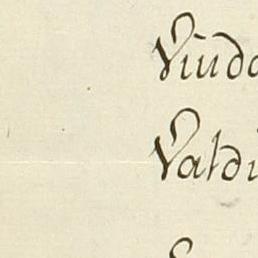 Viudo
Valdi